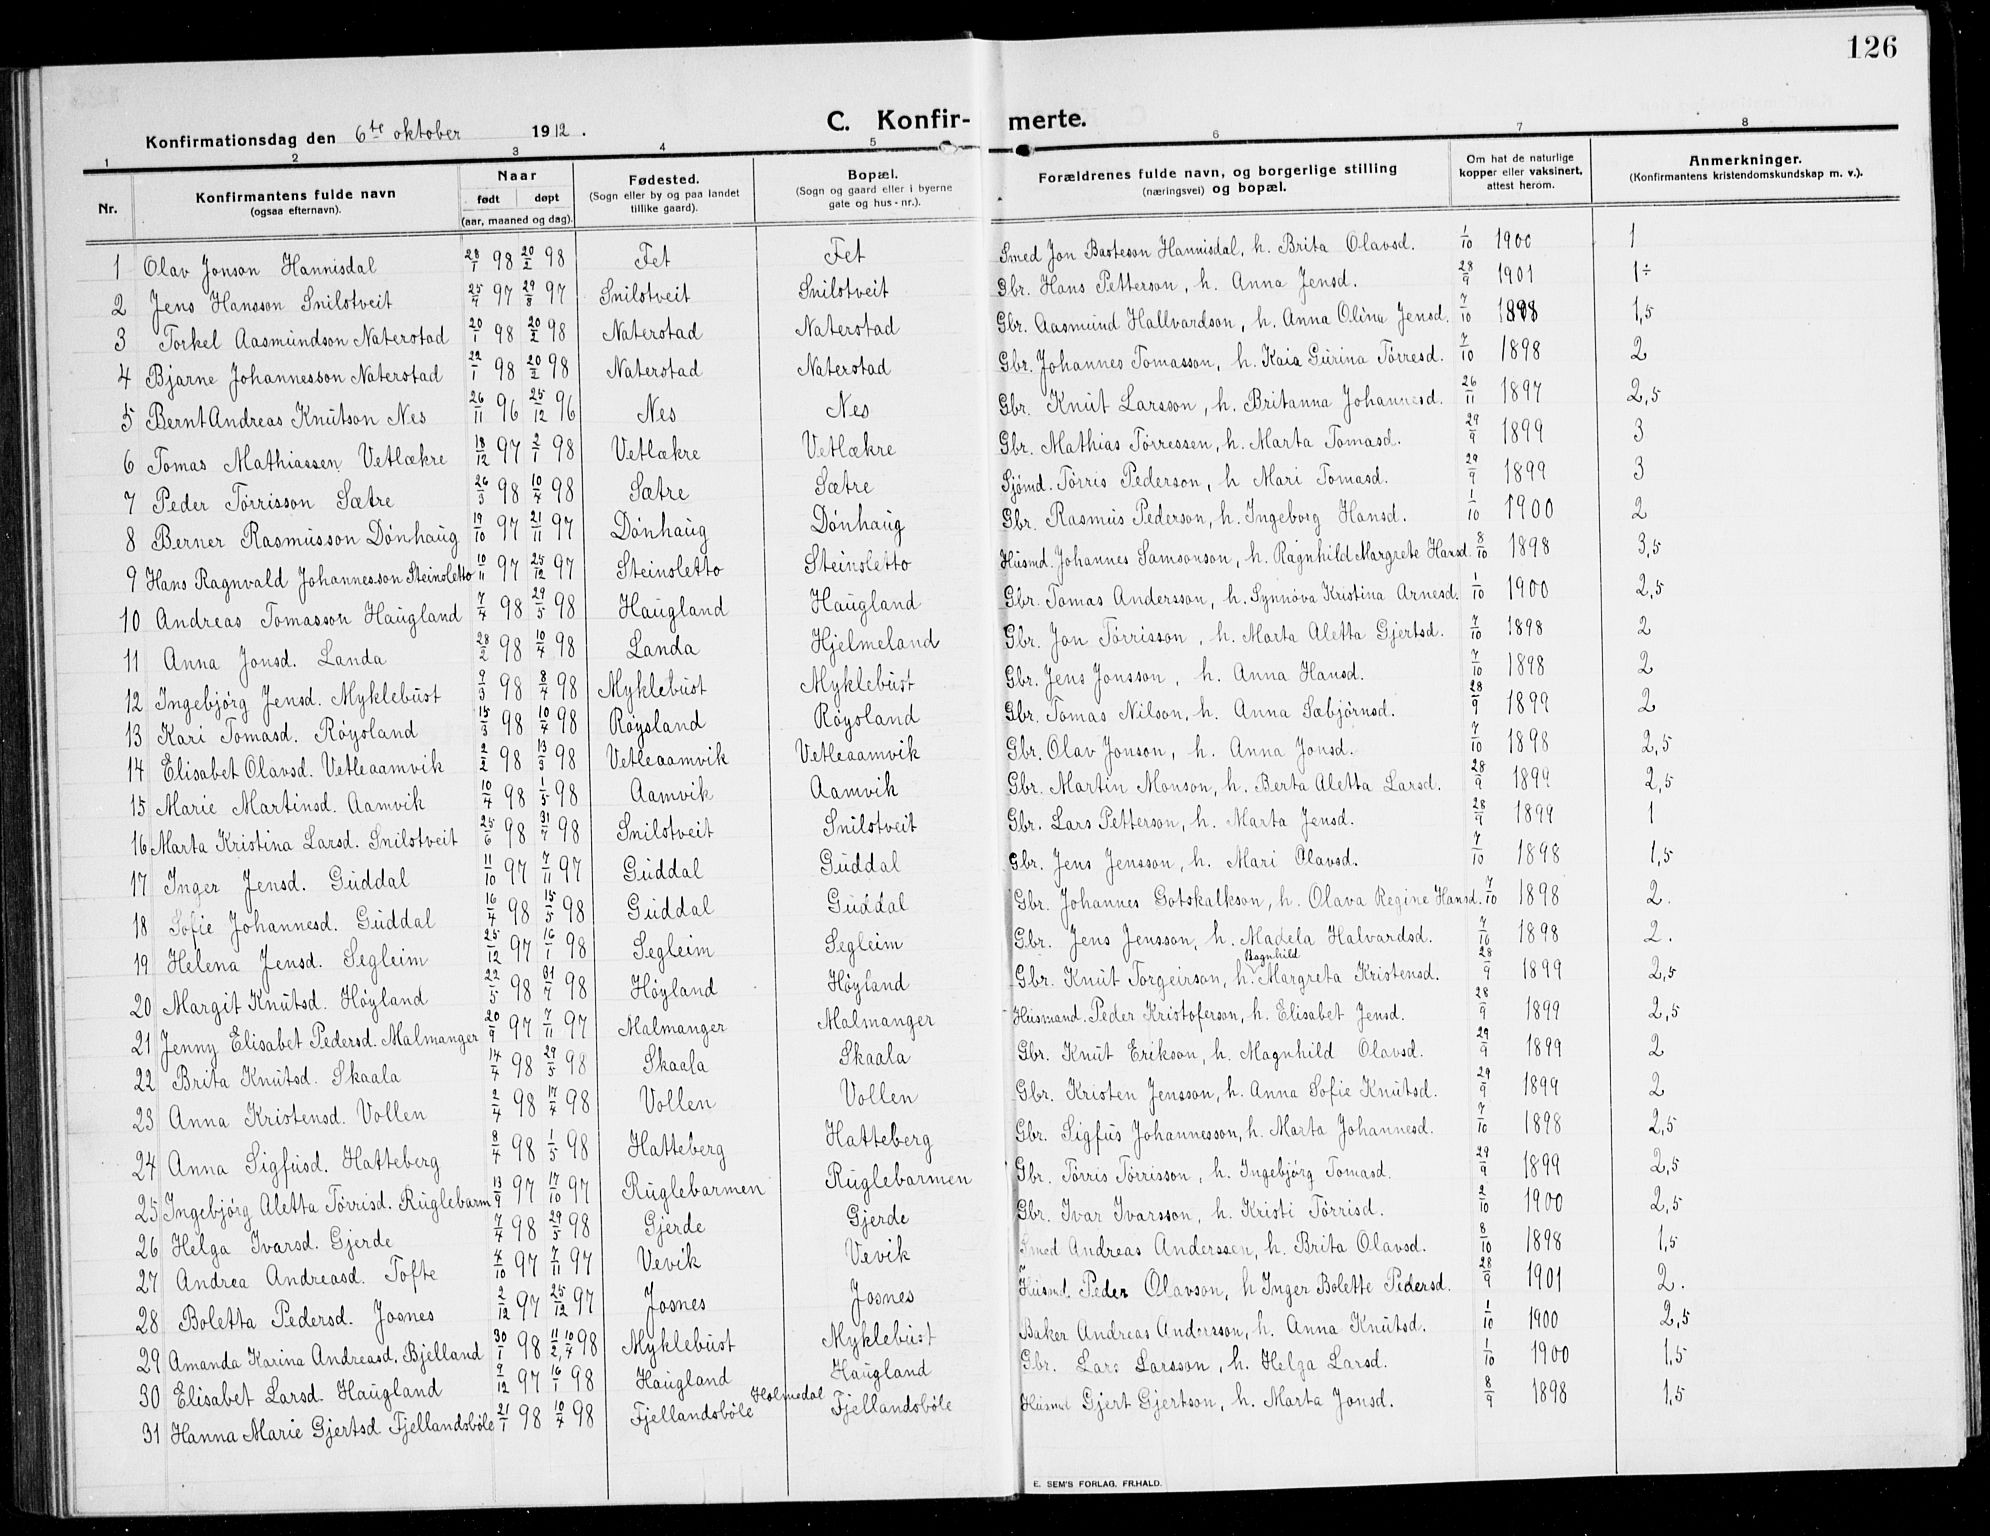 126
Konfirmationsdag den 6te oktober 1912.
C. Konfir- merte.
1 2 3 4 5 6 7 8
Nr. Konfirmantens fulde navn (ogsaa efternavn). Naar født døpt (aar, maaned og dag). Fødested. (Sogn eller by og paa landet tillike gaard). Bopæl. (Sogn og gaard eller i byerne gate og hus-nr.). Forældrenes fulde navn, og borgerlige stilling (næringsvei) og bopæl. Om hat de naturlige kopper eller vaksinert, attest herom. Anmerkninger. (Konfirmantens kristendomskundskap m. v.).
1 Olav Jonson Hannisdal 28/1 98 20/2 98 Fet Fet Smed Jon Basteson Hannisdal, h. Brita Olavsd. 1/10 1900 1
2 Jens Hansson Snilstveit 25/7 97 29/8 97 Snilstveit Snilstveit Gbr. Hans Petterson, h. Anna Jensd. 28/9 1901 1÷
3 Torkel Aasmundson Naterstad 20/1 98 20/2 98 Naterstad Naterstad Gbr. Aasmund Hallvardson, h. Anna Olina Jensd. 7/10 1898 1,5
4 Bjarne Johannesson Naterstad 22/1 98 20/2 98 Naterstad Naterstad Gbr. Johannes Tomasson, h. Kaia Gurina Tørresd. 7/10 1898 2
5 Bernt Andreas Knutson Nes 26/11 96 25/12 96 Nes Nes Gbr. Knut Larsson, h. Britanna Johannesd. 26/11 1897 2,5
6 Tomas Mathiassen Vetlækre 18/12 97 2/1 98 Vetlækre Vetlækre Gbr. Mathias Tørressen, h. Marta Tomasd. 29/9 1899 3
7 Peder Tørrisson Sætre 26/3 98 10/4 98 Sætre Sætre Sjømd. Tørris Pederson, h Mari Tomasd. 29/9 1899 3
8 Berner Rasmusson Dønhaug 19/10 97 21/11 97 Dønhaug Dønhaug Gbr. Rasmus Pederson, h. Ingeborg Hansd. 1/10 1900 2
9 Hans Ragnvald Johannesson Steinsletto 10/11 97 25/12 97 Steinsletto Steinsletto Husmd. Johannes Samsonson, h. Ragnhild Margrete Hansd. 8/10 1898 3,5
10 Andreas Tomasson Haugland 7/4 98 29/5 98 Haugland Haugland Gbr. Tomas Andersson, h. Synnøva Kristina Arnesd. 1/10 1900 2,5
11 Anna Jonsd. Landa 28/2 98 10/4 98 Landa Hjelmeland Gbr. Jon Tørrisson, h. Marta Aletta Gjertsd. 7/10 1898 2
12 Ingebjørg Jensd. Myklebust 9/3 98 8/4 98 Myklebust Myklebust Gbr. Jens Jonsson, h. Anna Hansd. 7/10 1898 2
13 Kari Tomasd. Røysland 15/3 98 10/4 98 Røysland Røysland Gbr. Tomas Nilson, h. Anna Sæbjørnsd. 28/9 1899 2
14 Elisabet Olavsd. Vetleaamvik 2/2 98 13/3 98 Vetleaamvik Vetleaamvik Gbr. Olav Jonson, h. Anna Jonsd. 7/10 1898 2,5
15 Marie Martinsd. Aamvik 10/4 98 1/5 98 Aamvik Aamvik Gbr. Martin Monson, h. Berta Aletta Larsd. 28/9 1899 2,5
16 Marta Kristina Larsd. Snilstveit 25/6 98 31/7 98 Snilstveit Snilstveit Gbr. Lars Petterson, h. Marta Jensd. 28/9 1899 1
17 Inger Jensd. Guddal 11/10 97 7/11 97 Guddal Guddal Gbr. Jens Jensson, h. Mari Olavsd. 7/10 1898 1,5
18 Sofie Johannesd. Guddal 16/4 98 15/5 98 Guddal Guddal Gbr. Johannes Gotskalkson, h. Olava Regine Hansd. 7/10 1898 2.
19 Helena Jensd. Segleim 25/12 97 16/1 98 Segleim Segleim Gbr. Jens Jensson, h. Madela Halvardsd. 7/10 1898 2.
20 Margit Knutsd. Høyland 22/5 98 31/7 98 Høyland Høyland Gbr. Knut Torgeirson, h. Ragnhild Margreta Kristensd. 28/9 1899 2,5
21 Jenny Elisabet Pedersd. Malmanger 20/9 97 7/11 97 Malmanger Malmanger Husmand. Peder Kristoferson, h. Elisabet Jensd. 28/9 1899 2,5
22 Brita Knutsd. Skaala 14/4 98 29/5 98 Skaala Skaala Gbr. Knut Erikson, h. Magnhild Olavsd. 29/9 1899 2
23 Anna Kristensd. Vollen 2/4 98 17/4 98 Vollen Vollen Gbr. Kristen Jensson, h. Anna Sofie Knutsd. 29/9 1899 2
24 Anna Sigfusd. Hatteberg 8/4 98 1/5 98 Hatteberg Hatteberg Gbr. Sigfus Johannesson, h. Marta Johannesd. 7/10 1898 2,5
25 Ingebjørg Aletta Tørrisd. Ruglebarm 13/9 97 17/10 97 Ruglebarmen Ruglebarmen Gbr. Tørris Tørrisson, h. Ingebjørg Tomasd. 29/9 1899 2,5
26 Helga Ivarsd. Gjerde 7/4 98 29/5 98 Gjerde Gjerde Gbr. Ivar Ivarsson, h. Kristi Tørrisd. 2/10 1900 2,5
27 Andrea Andreasd. Tofte 4/10 97 7/11 97 Vevik Vevik Smed Andreas Anderssen, h. Brita Olavsd. 8/10 1898 1,5
28 Boletta Pedersd. Josnes 2/12 97 25/12 97 Josnes Josnes Husmd. Peder Olavson, h Inger Bolette Pedersd. 28/9 1901 2.
29 Amanda Karina Andreasd. Bjelland 30/1 98 11/2, 10/4 98 Myklebust Myklebust Baker Andreas Andersson, h. Anna Knutsd. 1/10 1900 2,5
30 Elisabet Larsd. Haugland 9/12 97 16/1 98 Haugland Haugland Gbr. Lars Larsson, h. Helga Larsd. 1/10 1900 1,5
31 Hanna Marie Gjertsd Fjellandsbøle 21/1 98 10/4 98 Fjellandsbøle Holmedal Fjellandsbøle Husmd Gjert Gjertson, h. Marta Jonsd. 8/9 1898 1,5
E. SEM'S FORLAG, FR.HALD.